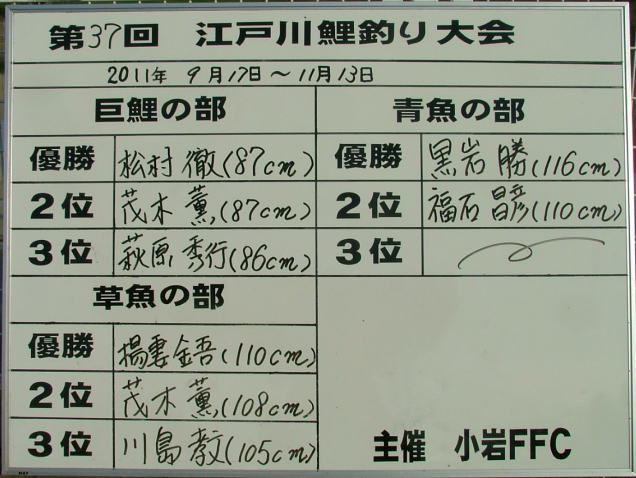 第37回 江戸川鯉釣り大会
2011年 9月17日～11月13日
巨鯉の部
優勝 松村 徹(87cm)
2位 茂木 薫(87cm)
3位 萩原 秀行(86cm)
青魚の部
優勝 黒岩 勝(116cm)
2位 福石 昌彦(110cm)
3位
草魚の部
優勝 (110cm)
2位 茂木 薫(108cm)
3位 川島 教(105cm)
主催 小岩FFC